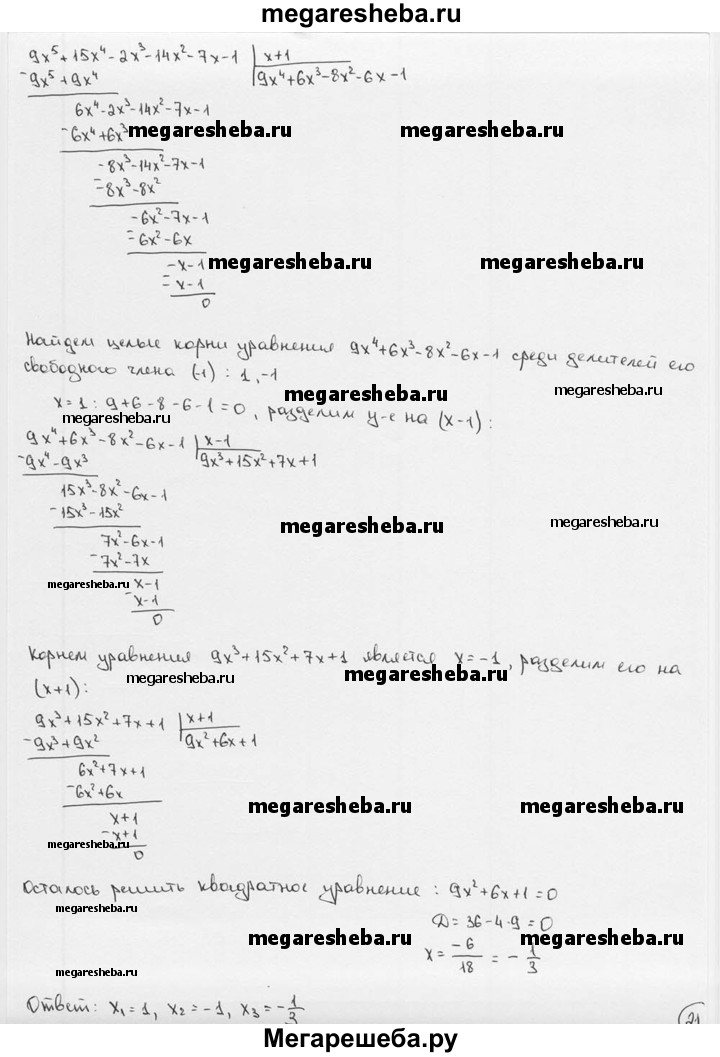 megaresheba.ru
9x⁵+15x⁴-2x³-14x²-7x-1 | x+1
-9x⁵+9x⁴ 9x⁴+6x³-8x²-6x-1
6x⁴-2x³-14x²-7x-1
-6x⁴+6x³ megaresheba.ru megaresheba.ru
-8x³-14x²-7x-1
-8x³-8x²
-6x²-7x-1
-6x²-6x
-x-1 megaresheba.ru megaresheba.ru
-x-1
0
Найдем целые корни уравнения 9x⁴+6x³-8x²-6x-1 среди делителей его
свободного члена (-1) : 1,-1
megaresheba.ru megaresheba.ru
x=1: 9+6-8-6-1=0, разделим у-е на (x-1):
megaresheba.ru
9x⁴+6x³-8x²-6x-1 | x-1
-9x⁴-9x³ 9x³+15x²+7x+1
15x³-8x²-6x-1
-15x³-15x²
megaresheba.ru megaresheba.ru
7x²-6x-1
-7x²-7x
megaresheba.ru x-1
-x-1
0
Корнем уравнения 9x³+15x²+7x+1 является x=-1, разделим его на
megaresheba.ru megaresheba.ru
(x+1):
9x³+15x²+7x+1 | x+1
-9x³+9x² 9x²+6x+1
6x²+7x+1
-6x²+6x
megaresheba.ru megaresheba.ru
x+1
-x+1
megaresheba.ru 0
Осталось решить квадратное уравнение : 9x²+6x+1=0
megaresheba.ru
D=36-4·9=0
megaresheba.ru megaresheba.ru
x=-6/18=-1/3
megaresheba.ru
Ответ: x₁=1, x₂=-1, x₃=-1/3
21
Мегарешеба.ру